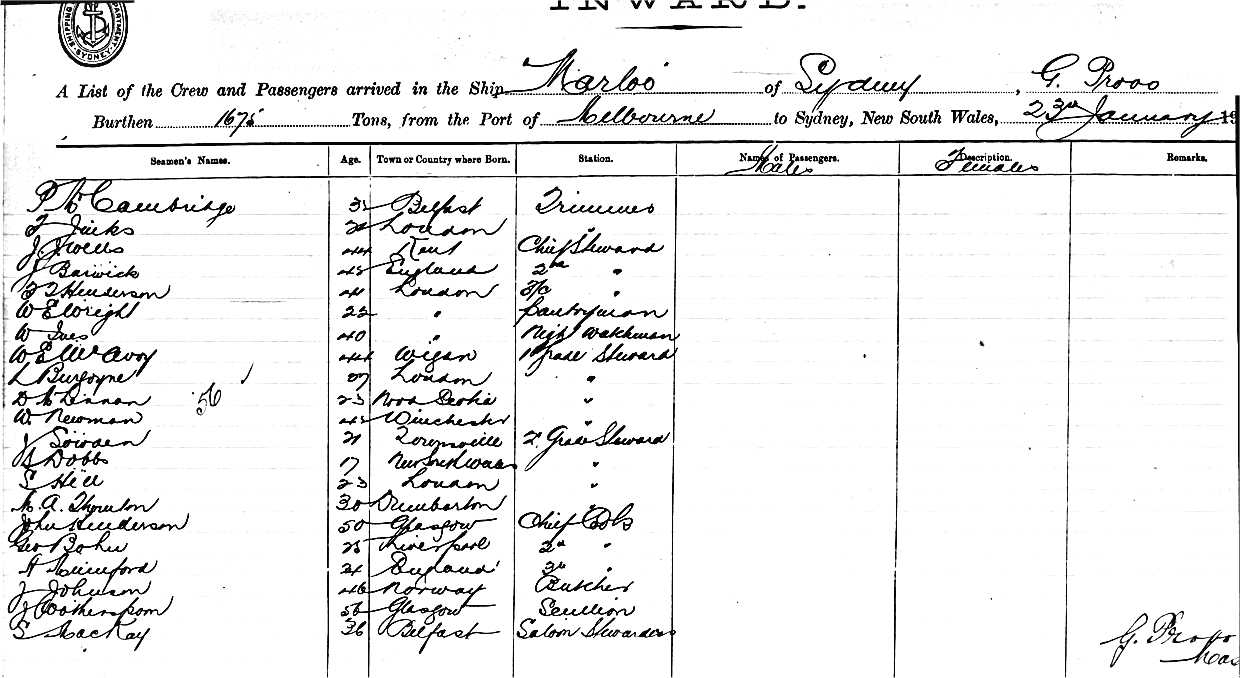 INWARD.
SHIPPING DEPARTMENT SYDNEY
A List of the Crew and Passengers arrived in the Ship Marloo of Sydney, G. Provo
Burthen 1675 Tons, from the Port of Melbourne to Sydney, New South Wales, 23rd January 19
Seamen's Names. Age. Town or Country where Born. Station. Names of Passengers. Description. Remarks.
Males Females
P McCambridge Belfast Trimmer
London "
J Wells 44 Kent Chief Steward
J Barwick England 2nd "
Henderson 41 London "
W E Wright 22 " Pantryman
W Ives 40 " Night Watchman
W E McAvoy 44 Wigan 1 Grade Steward
L Burgoyne London "
D McLennan 23 Nova Scotia "
56
W. Newman Winchester
J Sowden 21 Townsville 2 Grade Steward
Dobbs 17 New South Wales "
S Hill 23 London "
A. Thornton 30 Dumbarton
John Henderson 50 Glasgow Chief Cook
Geo Bohn 25 Liverpool 2nd "
Mumford 24 England "
J Johnson 46 Norway Butcher
J Wotherspoon 56 Glasgow Scullion
S MacKay 36 Belfast Saloon Stewardess
G. Provo